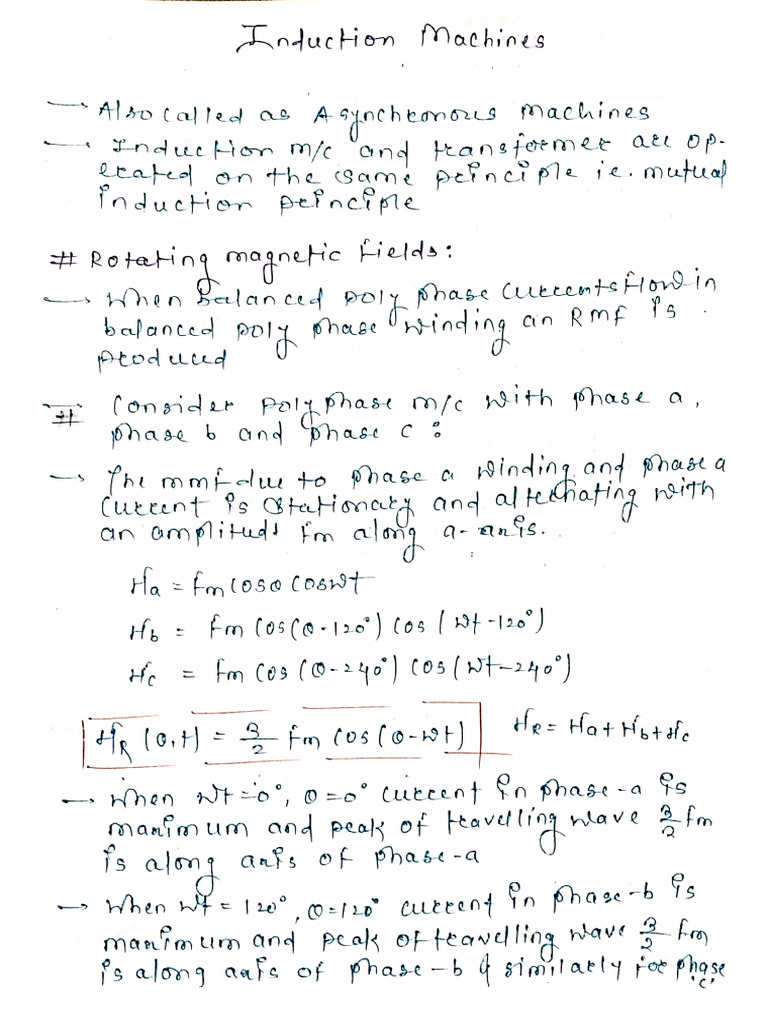 Induction Machines
→ Also called as Asynchronous Machines
→ Induction m/c and transformer are op-
erated on the same principle i.e. mutual
induction principle
# Rotating magnetic fields:
→ When balanced poly phase currents flow in
balanced poly phase winding an RMF is
produced
# Consider poly phase m/c with phase a,
phase b and phase c:
→ The mmf due to phase a winding and phase a
current is stationary and alternating with
an amplitude Fm along a-axis.
Ha = Fm cosθ cosωt
Hb = Fm cos(θ-120°) cos(ωt-120°)
Hc = Fm cos(θ-240°) cos(ωt-240°)
HR(θ,t) = 3/2 Fm cos(θ-ωt) HR = Ha+Hb+Hc
→ When ωt=0°, θ=0° current in phase-a is
maximum and peak of travelling wave 3/2 Fm
is along axis of phase-a
→ When ωt=120°, θ=120° current in phase-b is
maximum and peak of travelling wave 3/2 Fm
is along axis of phase-b & similarly for phase
'c'